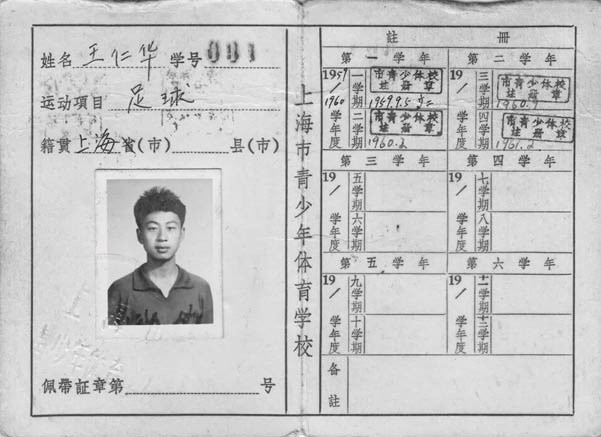 姓名 王仁华 学号 001
运动項目 足球
籍貫 上海 省(市) 县(市)
佩帶証章第 号
上海市青少年体育学校
註 冊
第一学年
1959/1960 学年度
一学期
市青少体校
註册章
1959.9.5
二学期
市青少体校
註册章
1960.2
第二学年
19 / 学年度
三学期
市青少体校
註册章
1960.9
四学期
市青少体校
註册章
1961.2
第三学年
19 / 学年度
五学期
六学期
第四学年
19 / 学年度
七学期
八学期
第五学年
19 / 学年度
九学期
十学期
第六学年
19 / 学年度
十一学期
十二学期
备註